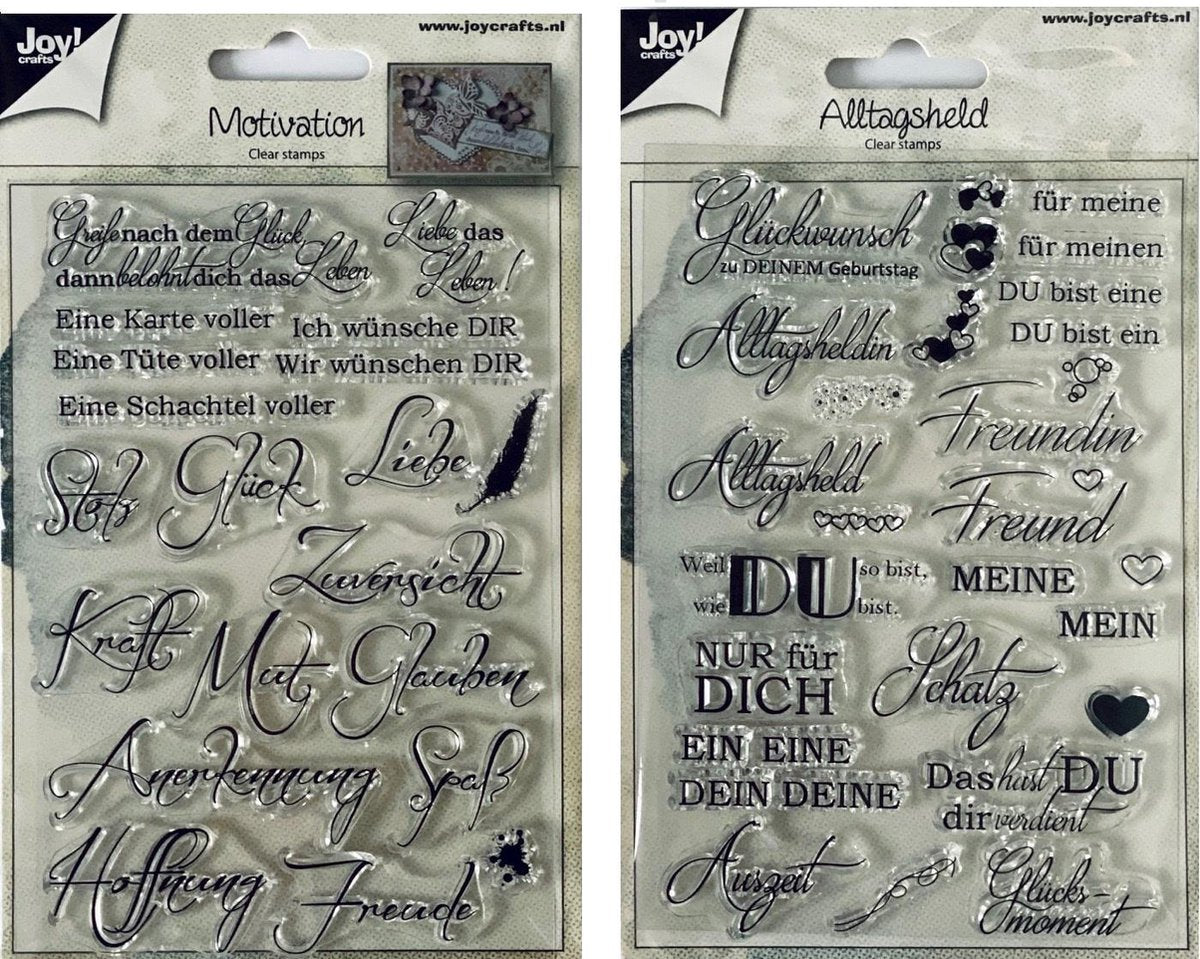 Joy!
crafts
www.joycrafts.nl
Motivation
Clear stamps
Greife nach dem Glück
dann belohnt dich das Leben
Liebe das
Leben!
Eine Karte voller
Ich wünsche DIR
Eine Tüte voller
Wir wünschen DIR
Eine Schachtel voller
Liebe
Stolz
Glück
Zuversicht
Kraft
Mut
Glauben
Anerkennung
Spaß
Hoffnung
Freude
Joy!
crafts
www.joycrafts.nl
Alltagsheld
Clear stamps
Glückwunsch
zu DEINEM Geburtstag
für meine
für meinen
DU bist eine
DU bist ein
Alltagsheldin
Freundin
Alltagsheld
Freund
Weil DU so bist,
wie bist.
MEINE
MEIN
NUR für
DICH
Schatz
EIN EINE
DEIN DEINE
Das hast DU
dir verdient
Auszeit
Glücks-
moment